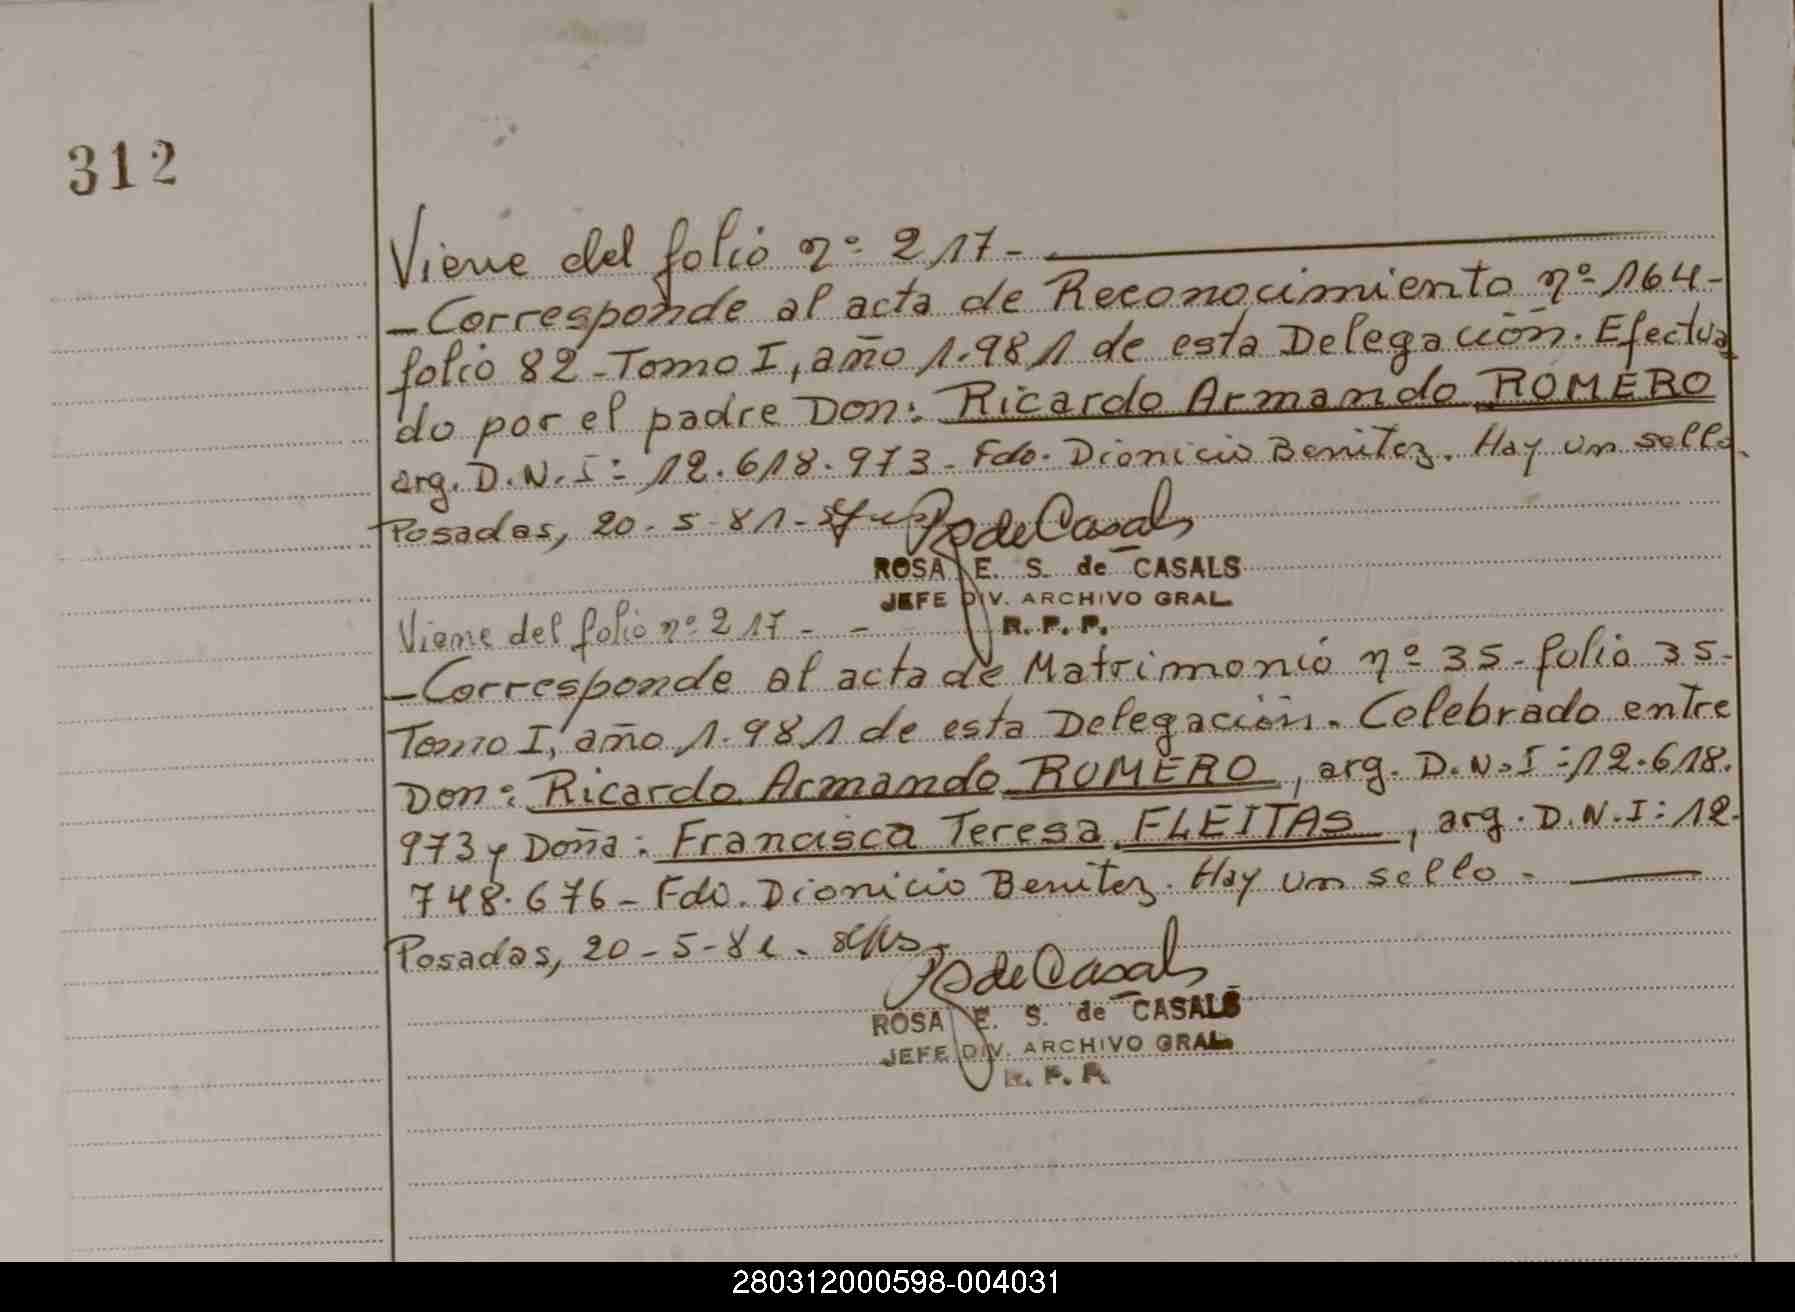 312
Viene del folio nº 217-
- Corresponde al acta de Reconocimiento nº 164-
folio 82-Tomo I, año 1.981 de esta Delegación. Efectua
do por el padre Don: Ricardo Armando ROMERO
arg. D.N.I: 12.618.973- Fdo. Dionicio Benitez. Hay un sello.
Posadas, 20-5-81-
de Casals
ROSA E. S. de CASALS
JEFE DIV. ARCHIVO GRAL.
R. P. P.
Viene del folio nº 217- -
- Corresponde al acta de Matrimonio nº 35-folio 35-
Tomo I, año 1.981 de esta Delegación. Celebrado entre
Don: Ricardo Armando ROMERO, arg. D.N.I:12.618.
973 y Doña: Francisca Teresa FLEITAS, arg. D.N.I:12.
748.676- Fdo. Dionicio Benitez. Hay un sello-
Posadas, 20-5-81.
de Casals
ROSA E. S. de CASALS
JEFE DIV. ARCHIVO GRAL.
R. P. P.
280312000598-004031